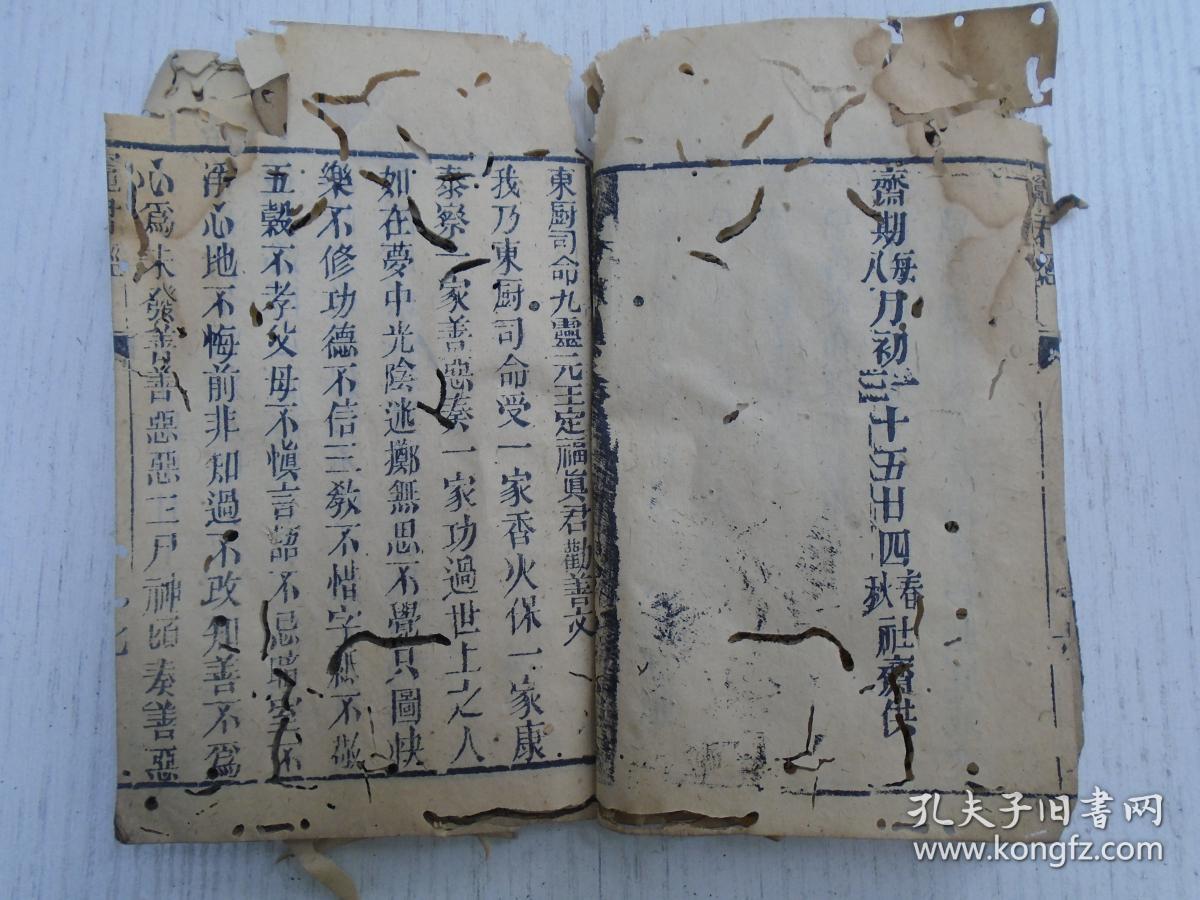 齋期每月初一十五廿四春社齋供
八 三 秋
東厨司命九靈元王定福眞君勸善文
我乃東厨司命受一家香火保一家康
泰察一家善惡奏一家功過世上之人
如在夢中光陰迯擲無思不覺只圖快
樂不修功德不信三敎不惜字紙不敬
五穀不孝父母不慎言語不忌暗室不
淨心地不悔前非知過不改知善不爲
心爲未發善善惡惡三尸神頃奏善惡
竈君經
孔夫子旧书网
www.kongfz.com